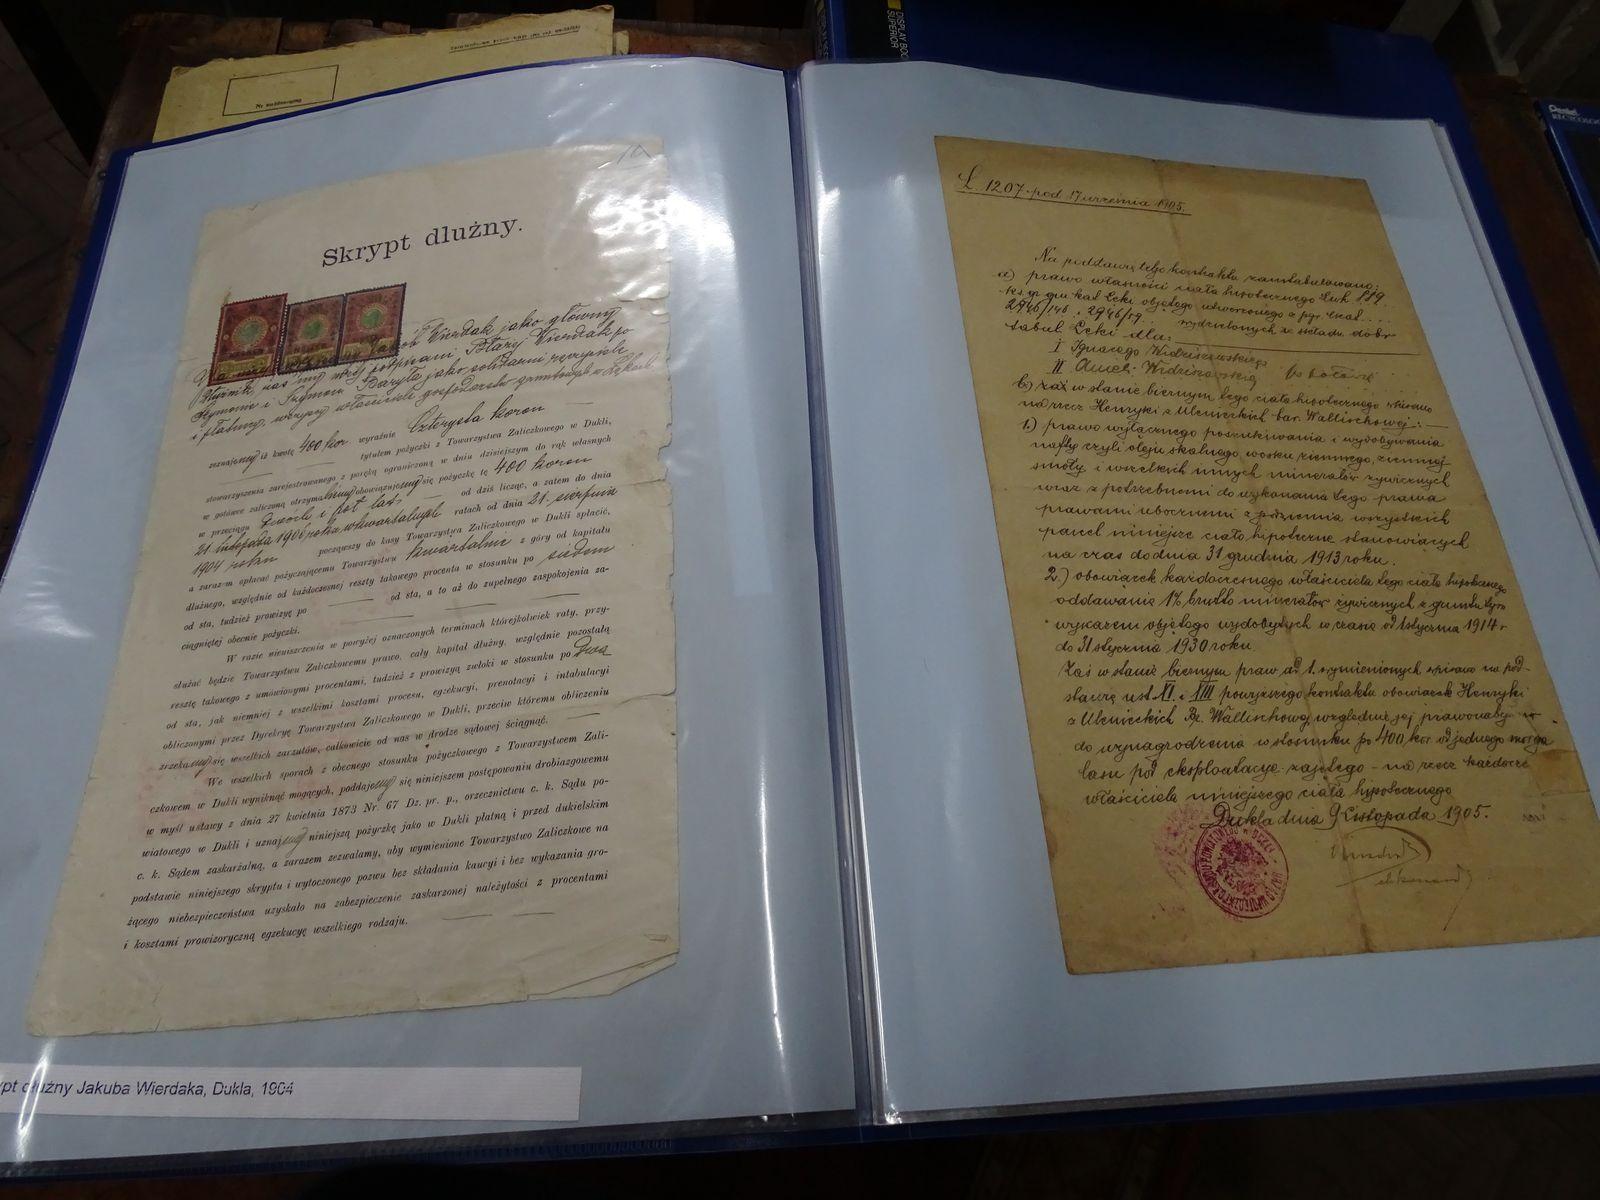 Nr ewidencyjny
DISPLAY BOOK
SUPERIOR
Pentel
RECYCOLOGY
Skrypt dłużny.
Jakób Wierdak jako główny
dłużnik, nas niżej podpisani, Błażej Wierdak po
Szymonie i Szymon Baryła jako solidarni ręczyciele
i płatnicy, wszyscy właściciele gospodarstw gruntowych w
zeznajemy iż kwotę 400 kor wyraźnie Czterysta koron
tytułem pożyczki z Towarzystwa Zaliczkowego w Dukli,
stowarzyszenia zarejestrowanego z poręką ograniczoną w dniu dzisiejszym do rąk własnych
w gotówce zaliczoną otrzymaliśmy obowiązujemy się pożyczkę tę 400 koron
w przeciągu dwóch i pół lat od dziś licząc, a zatem do dnia
21 listopada 1906 roku w kwartalnych ratach od dnia 21. sierpnia
1904 roku począwszy do kasy Towarzystwa Zaliczkowego w Dukli spłacić,
a zarazem opłacać pożyczającemu Towarzystwu kwartalnie z góry od kapitału
dłużnego, względnie od każdoczesnej reszty takowego procenta w stosunku po siedem
od sta, tudzież prowizyę po od sta, a to aż do zupełnego zaspokojenia za-
ciągniętej obecnie pożyczki.
W razie nieuiszczenia w powyżej oznaczonych terminach którejkolwiek raty, przy-
służać będzie Towarzystwu Zaliczkowemu prawo, cały kapitał dłużny, względnie pozostałą
resztę takowego z umówionymi procentami, tudzież z prowizyą zwłoki w stosunku po dwa
od sta, jak niemniej z wszelkimi kosztami procesu, egzekucyi, prenotacyi i intabulacyi
obliczonymi przez Dyrekcyę Towarzystwa Zaliczkowego w Dukli, przeciw któremu obliczeniu
zrzekamy się wszelkich zarzutów, całkowicie od nas w drodze sądowej ściągnąć.
We wszelkich sporach z obecnego stosunku pożyczkowego z Towarzystwem Zali-
czkowem w Dukli wyniknąć mogących, poddajemy się niniejszem postępowaniu drobiazgowemu
w myśl ustawy z dnia 27 kwietnia 1873 Nr. 67 Dz. pr. p., orzecznictwu c. k. Sądu po-
wiatowego w Dukli i uznajemy niniejszą pożyczkę jako w Dukli płatną i przed dukielskim
c. k. Sądem zaskarżalną, a zarazem zezwalamy, aby wymienione Towarzystwo Zaliczkowe na
podstawie niniejszego skryptu i wytoczonego pozwu bez składania kaucyi i bez wykazania gro-
żącego niebezpieczeństwa uzyskało na zabezpieczenie zaskarzonej należytości z procentami
i kosztami prowizoryczną egzekucyę wszelkiego rodzaju.
ypt dłużny Jakuba Wierdaka, Dukla, 1904
L. 1207 pod 17 września 1905.
Na podstawie tego kontraktu zaintabulowano:
a) prawo własności ciała hipotecznego Lwh 889.
ks. gr. gm. kat Łęki objętego utworzonego z pgr. lkat.
2946/148 i 2946/19. wydzielonych ze składu dóbr
tabul. Łęki dla:
I Ignacego Widziszowskiego
II Anieli Widziszowskiej po połowie
b) zaś w stanie biernym tego ciała hipotecznego wpisano
na rzecz Henryki z Ulenieckich bar. Wallischowej:
1.) prawo wyłącznego poszukiwania i wydobywania
nafty czyli oleju skalnego wosku ziemnego, ziemnej
smoły, i wszelkich innych minerałów żywicznych
wraz z potrzebnemi do wykonania tego prawa
prawami ubocznemi z poziemia wszystkich
parcel niniejsze ciało hipoteczne stanowiących
na czas do dnia 31 grudnia 1913 roku.
2.) obowiązek każdoczesnego właściciela tego ciała hipotecznego
oddawania 1% brutto minerałów żywicznych z gruntu tym
wykazem objętego wydobytych w czasie od 1 stycznia 1914 r
do 31 stycznia 1930 roku.
Zaś w stanie biernym praw ad 1. wymienionych wpisano na pod-
stawie ust. XI. i XIII powyższego kontraktu obowiązek Henryki
z Ulenieckich Br. Wallischowej względnie jej prawonabywców
do wynagrodzenia w stosunku po 400 kor. od jednego morga
lasu pod eksploatacyę zajętego – na rzecz każdocz.
właściciela niniejszego ciała hipotecznego
Dukla dnia 9 Listopada 1905.